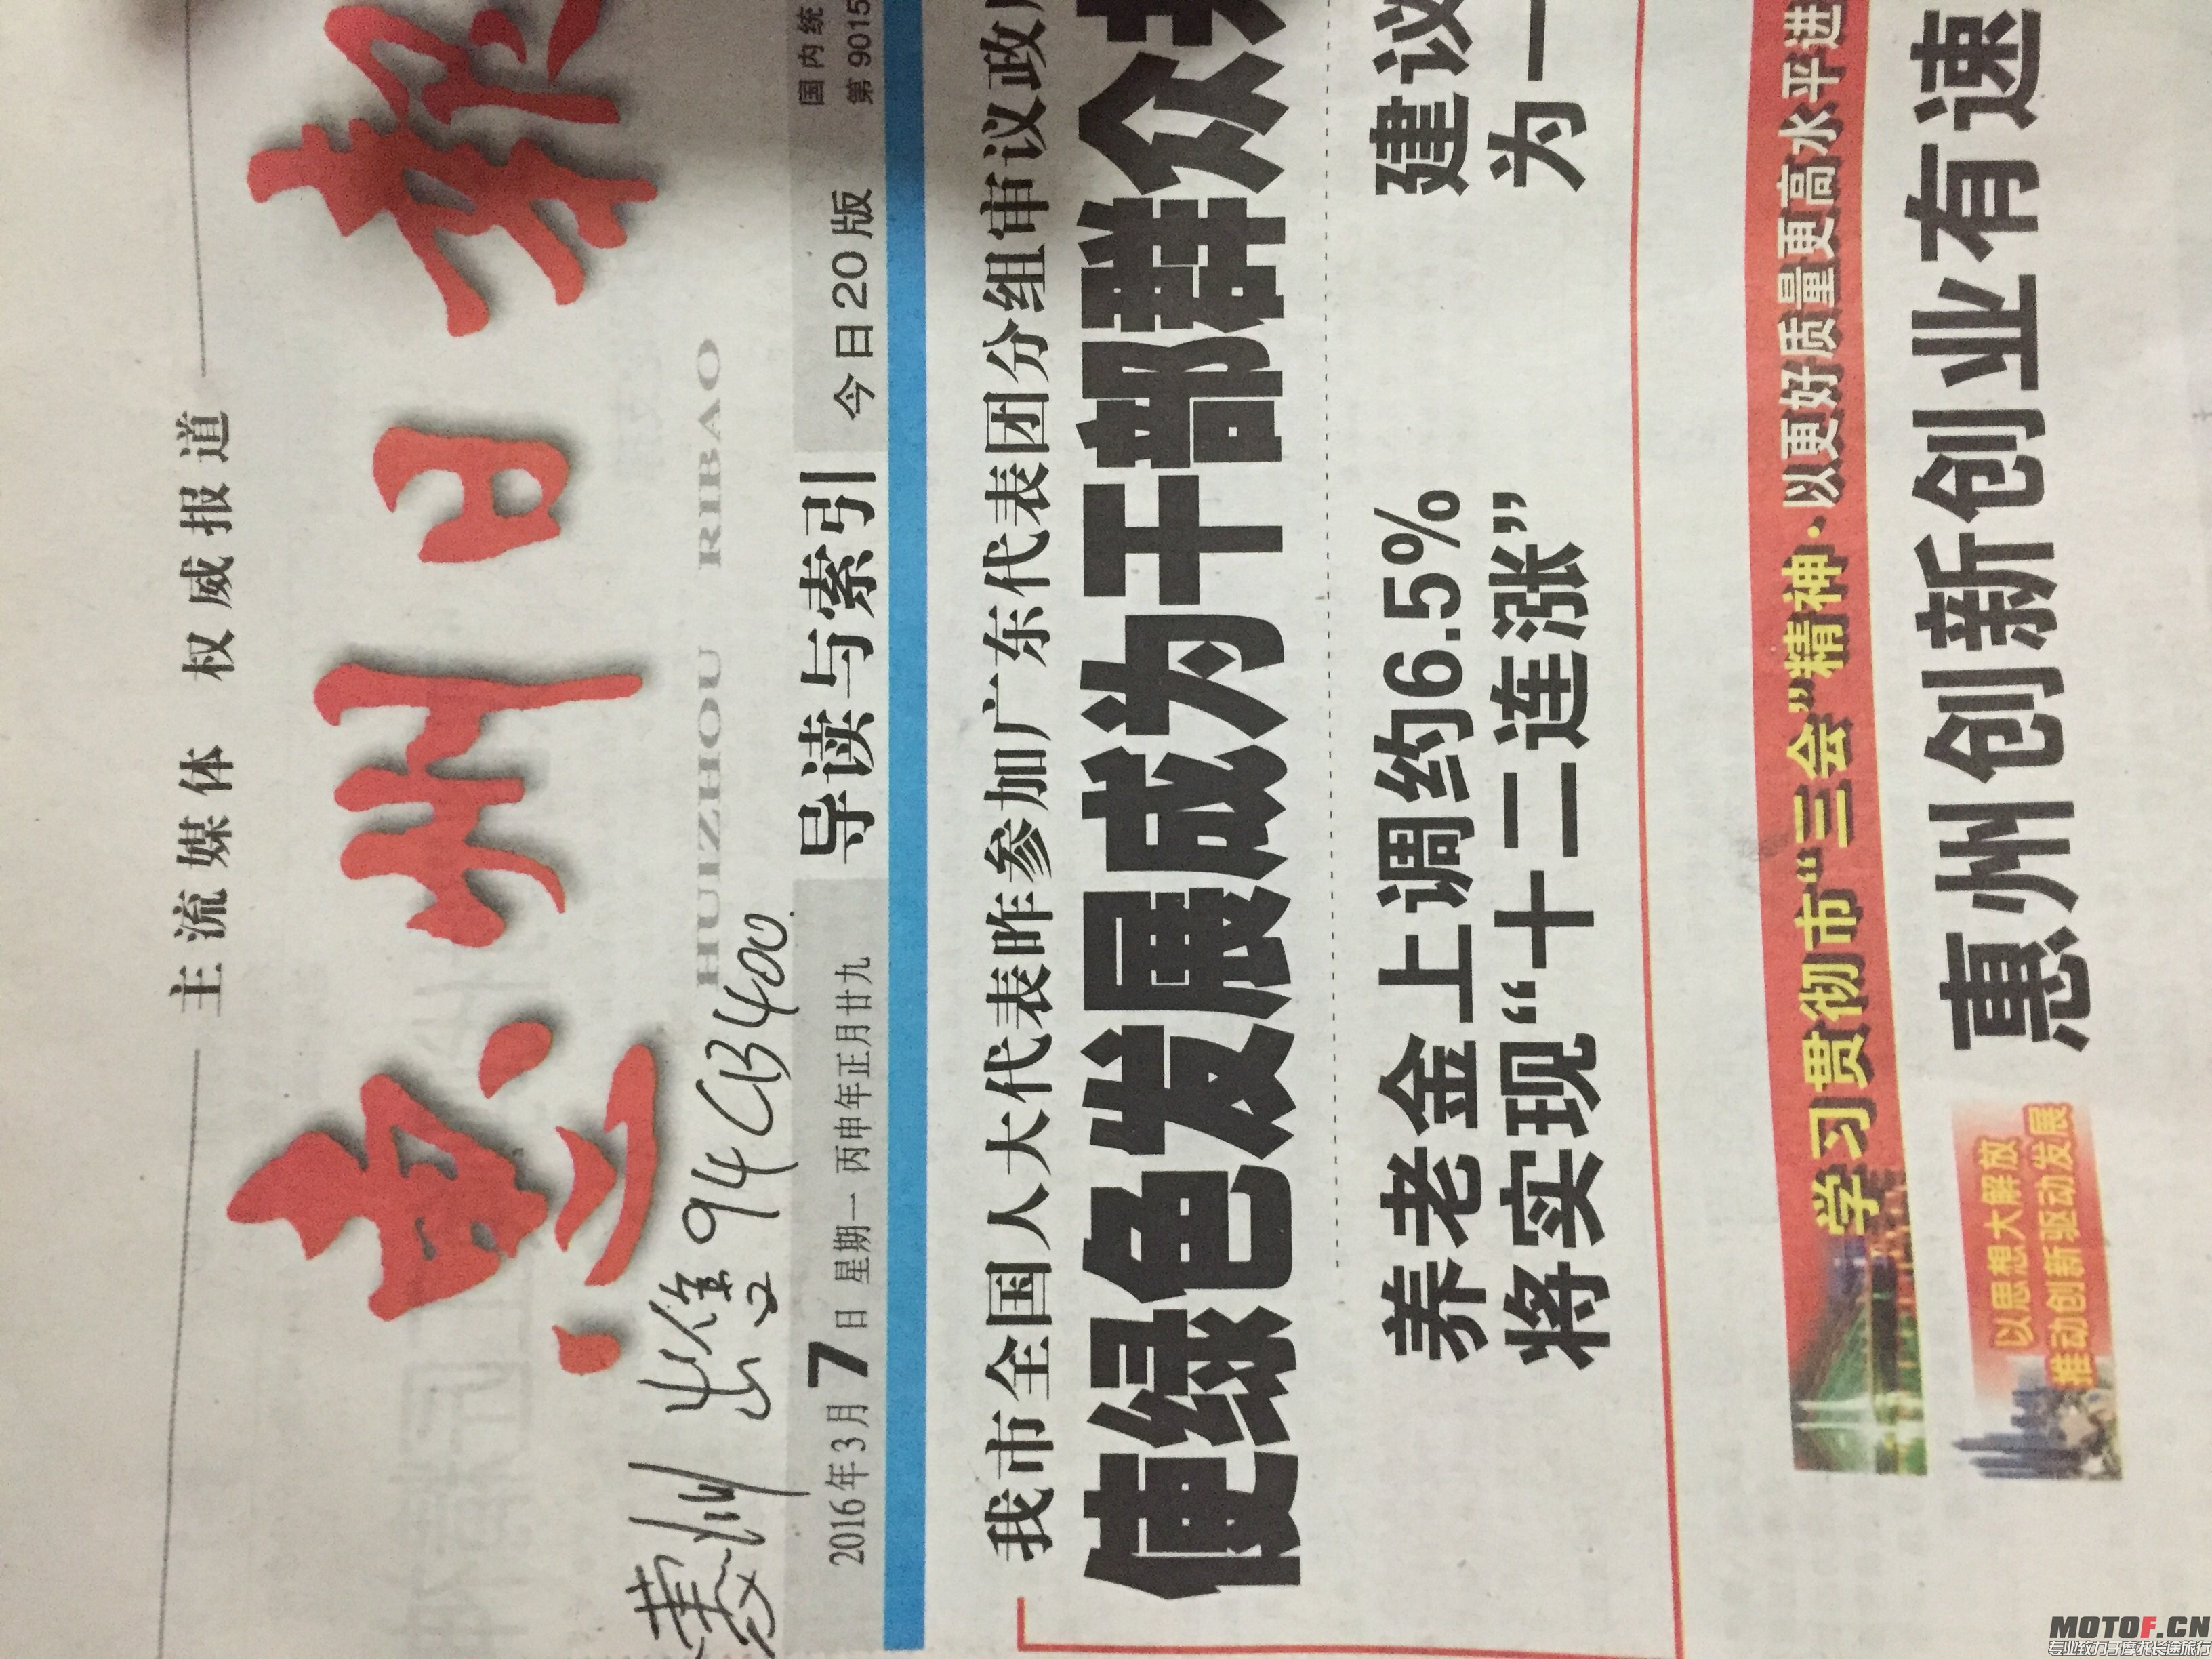 主流媒体 权威报道
惠州日报
HUIZHOU RIBAO
惠州 出售 94 CB400.
2016年3月7日 星期一 丙申年正月廿九
导读与索引
今日20版
国内统
第9015
我市全国人大代表昨参加广东代表团分组审议政
使绿色发展成为干部群众
养老金上调约6.5%
将实现“十二连涨”
建议
为一
学习贯彻市“三会”精神·以更好质量更高水平进
以思想大解放
推动创新驱动发展
惠州创新创业有速
MOTOF.CN
专业致力于摩托长途旅行